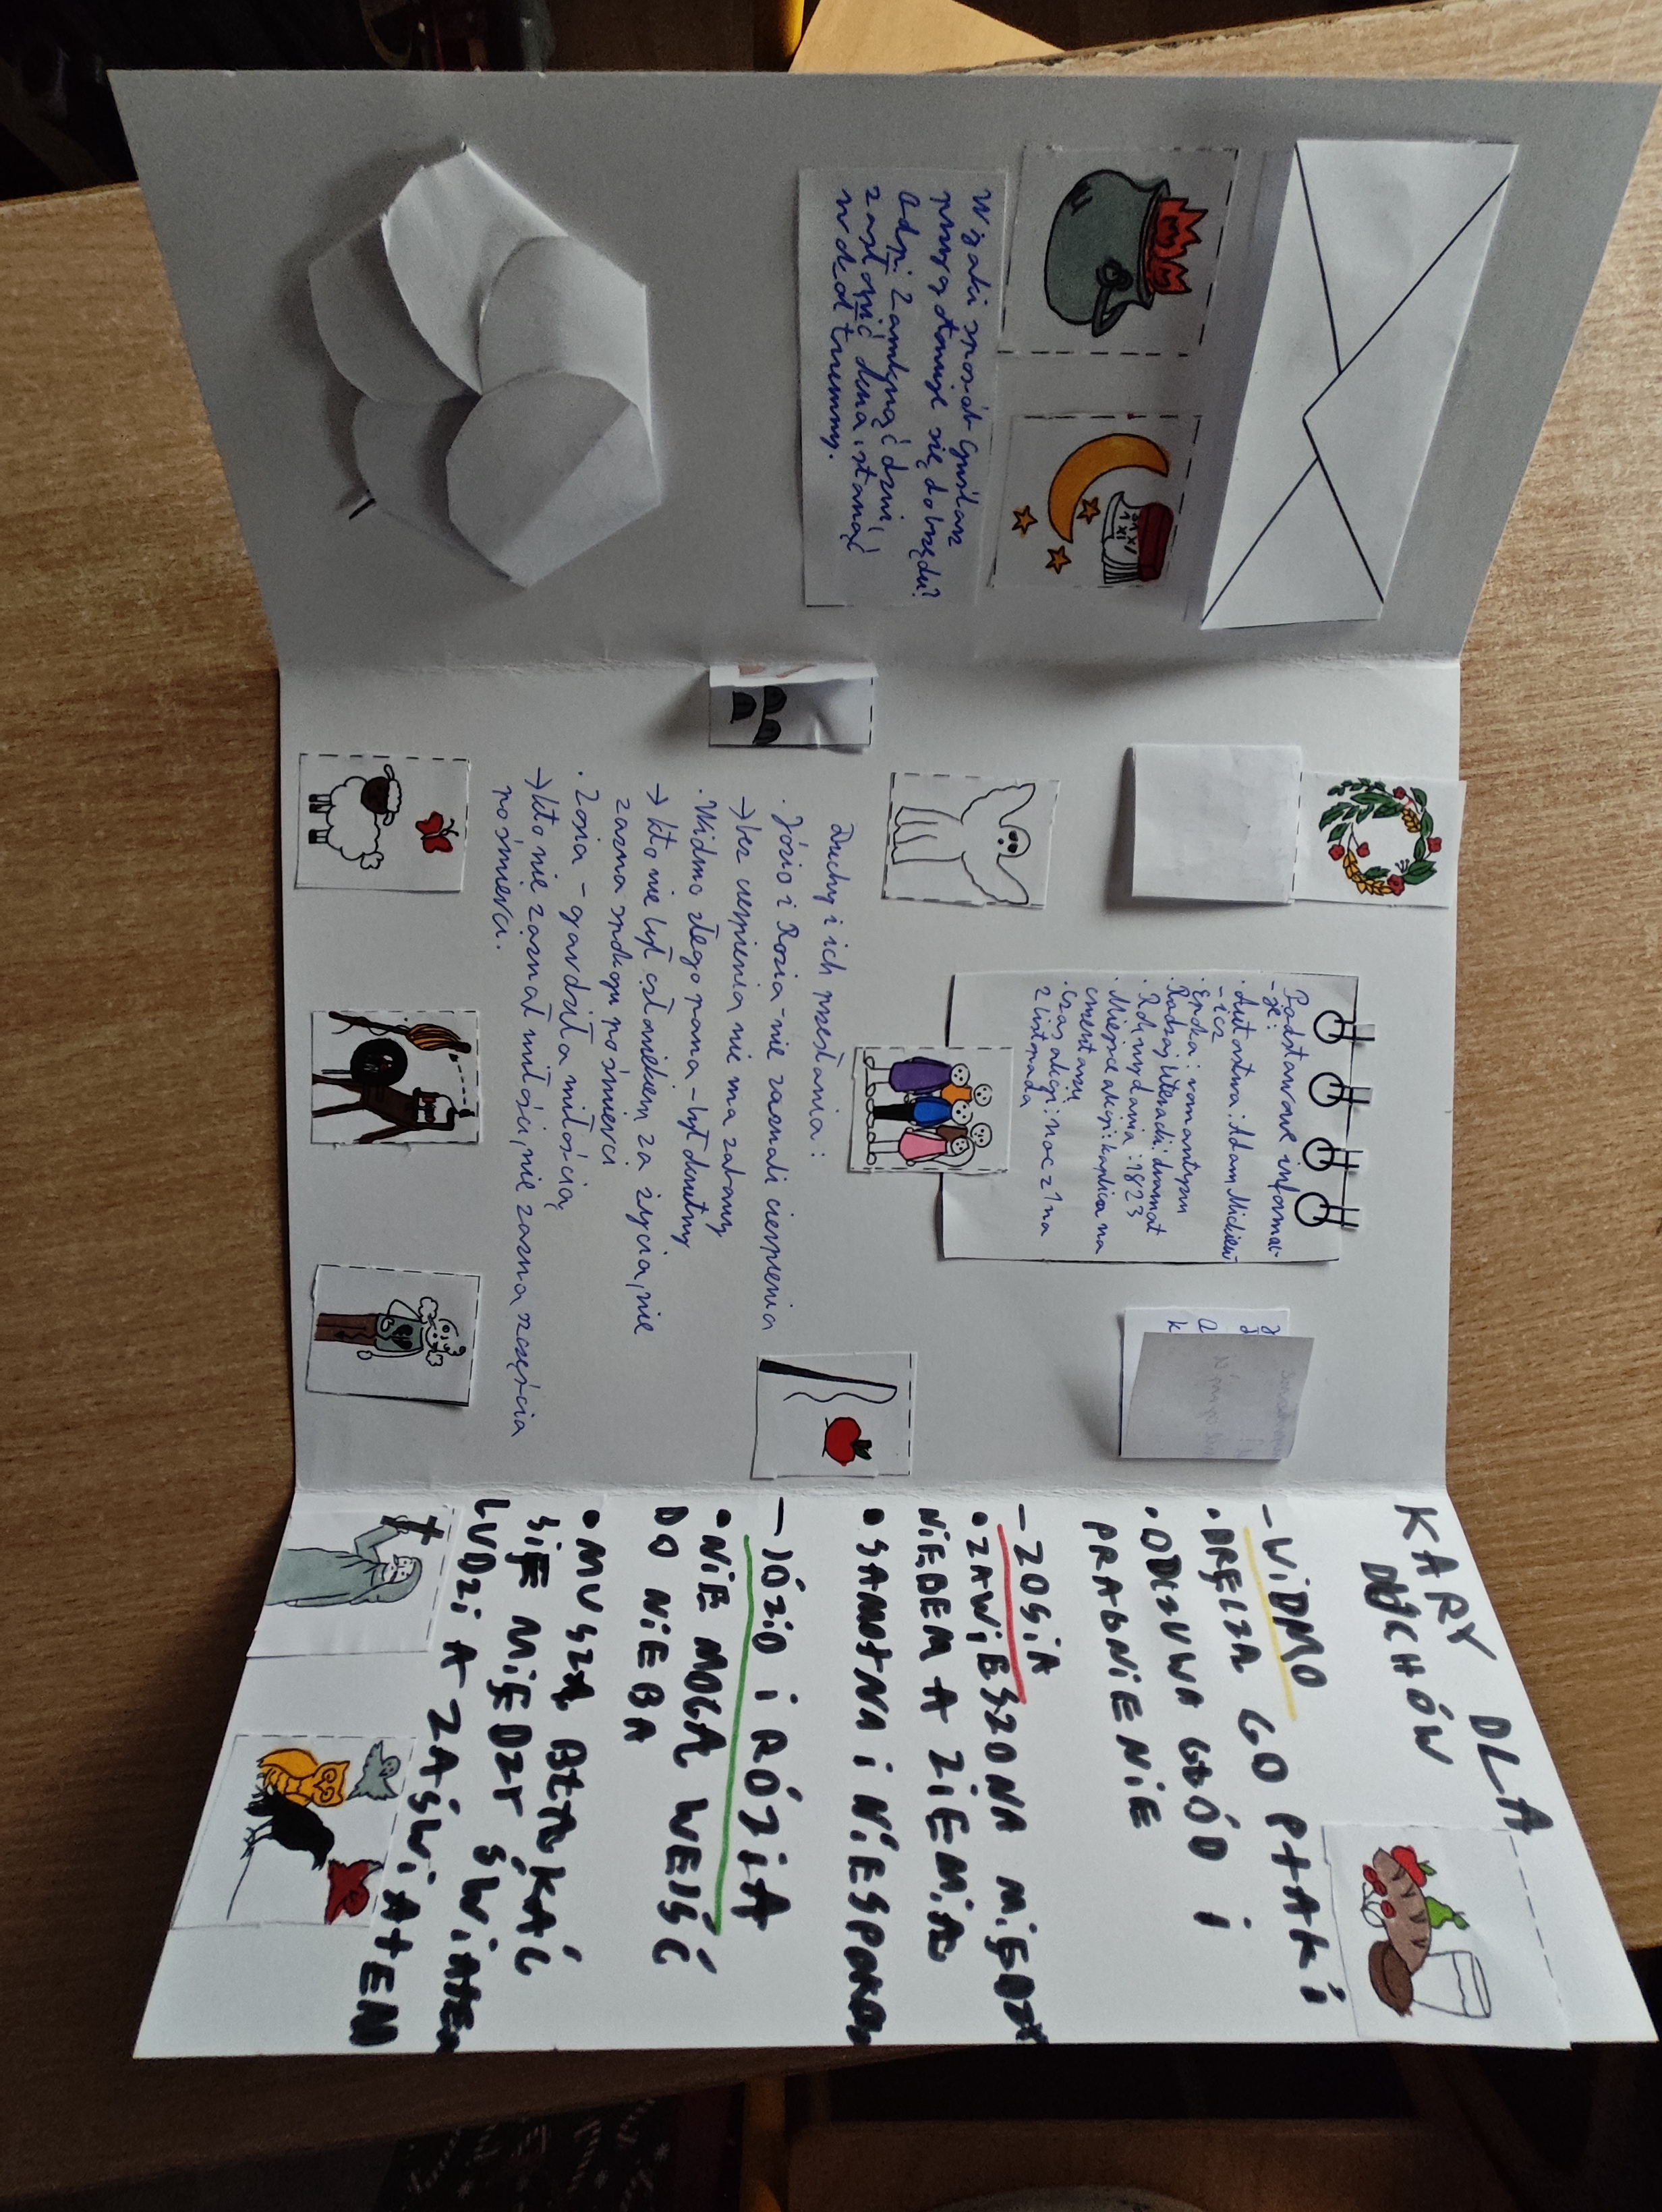 W jaki sposób Guślarz
przygotowuje się do obrzędu?
Odp: Zamknąć drzwi,
zasłonić okna, stanąć
wokół trumny.
Podstawowe informac-
-je:
• Autostwo: Adam Mickiew-
-icz
• Epoka: romantyzm
Rodzaj literacki: dramat
• Rok wydania: 1823
• Miejsce akcji: kaplica na
cmentarzu
• czas akcji: noc z 1 na
2 listopada
Duchy i ich przesłania:
• Józio i Rozia - nie zaznali cierpienia
→ bez cierpienia nie ma zabawy
• Widmo złego pana - był okrutny
→ kto nie był człowiekiem za życia, nie
zazna spokoju po śmierci
• Zosia - gardziła miłością
→ kto nie zaznał miłości, nie zazna szczęścia
po śmierci.
KARY DLA
DUCHÓW
- WIDMO
• DRĘCZĄ GO PTAKI
• ODCZUWA GŁÓD I
PRAGNIENIE
- ZOSIA
• ZAWIESZONA MIĘDZY
NIEBEM A ZIEMIĄ
• SAMOTNA I NIESPOKOJ
- JÓZIO I RÓZIA
• NIE MOGĄ WEJŚĆ
DO NIEBA
• MUSZĄ BŁĄKAĆ
SIĘ MIĘDZY ŚWIATEM
LUDZI A ZAŚWIATEM